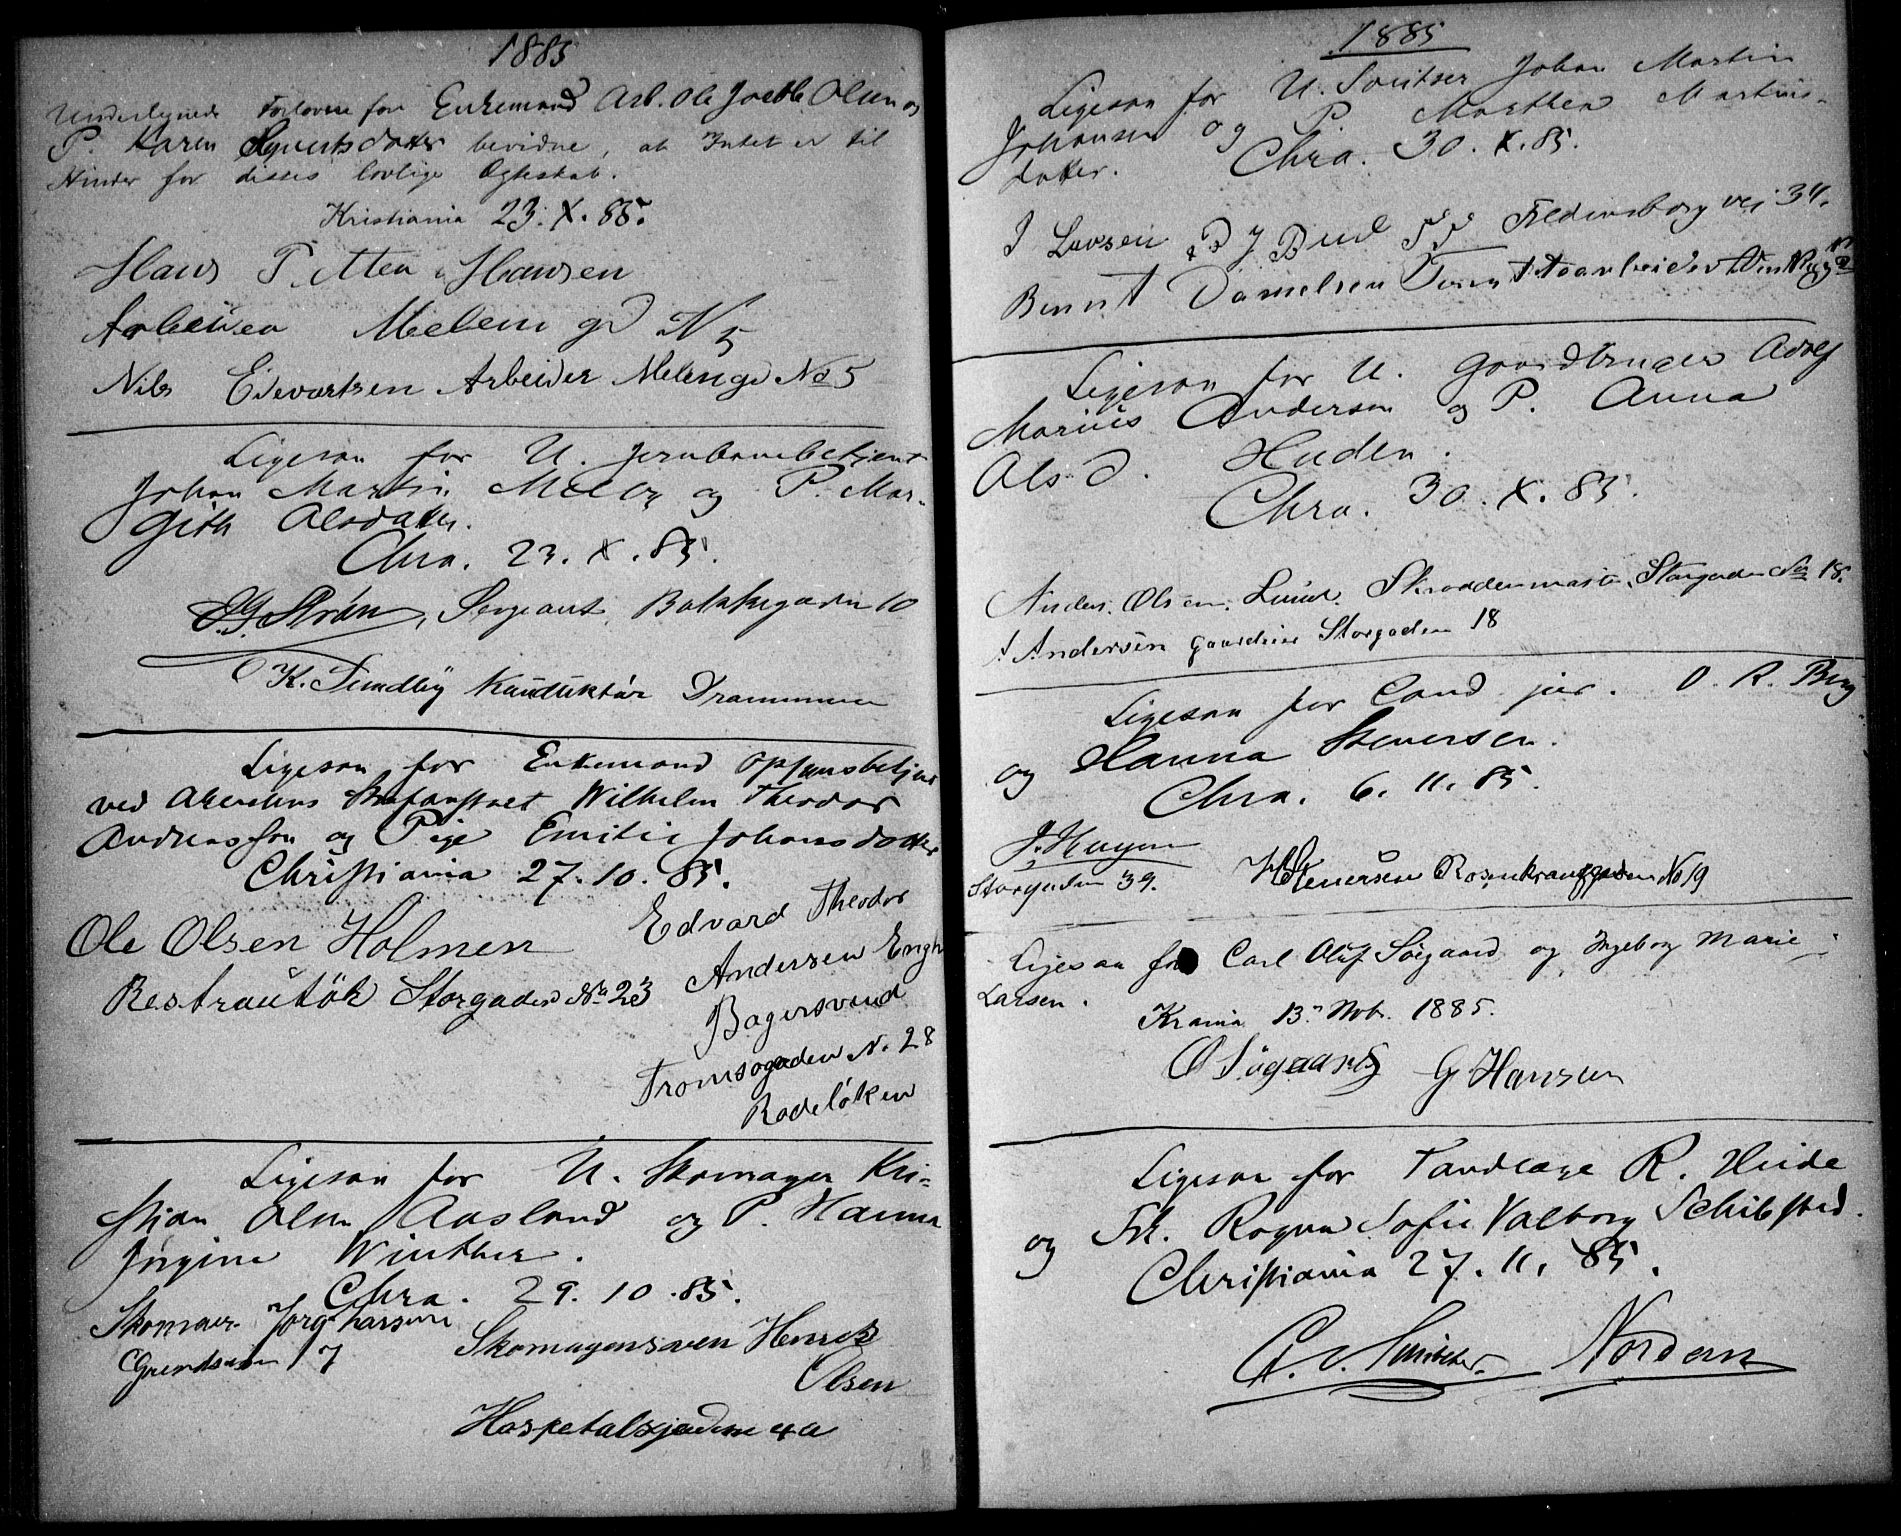 1885
Undertegnede Forlovere for Enkemand Arb. Ole Jacob Olsen og
P. Karen Syvertsdatter bevidne, at Intet er til
Hinder for disses lovlige Ægteskab.
Kristiania 23. X. 85.
Hans Petter Hansen
Arbeider Melem gd N 5
Nils Edevartsen Arbeider Melemgd No 5
Ligesaa for U. Jernbanebetjent
Johan Martin Melby og P. Mar-
gith Olsdatter.
Chra. 23. X. 85.
Strøm, Sergeant, Bakkegaden 10
K. Sundby Kanduktør Drammen
Ligesaa for Enkemand Opsynsbetjent
ved Akershus Strafanstalt Wilhelm Theodor
Andreassen og Pige Emilie Johansdatter
Christiania 27. 10. 85.
Ole Olsen Holmen
Restrautør Storgaden No 23
Edvard Theodor
Andersen Engh
Bagersvend
Tromsøgaden N. 28
Rodeløken
Ligesaa for U. Skomager Kri-
stian Olsen Aasland og P. Hanna
Jørgine Winther.
Chra. 29. 10. 85.
Skomager Jørg. Larsen
Grændsen 17
Skomagersven Henrek
Olsen
Hospetalsgaden 4a
1885
Ligesaa for U. Johan Martin
Johansen og P. Marthea Martins-
datter.
Chra. 30. X. 85.
J Larsen Bud Fredensborg vei 34.
Bernt Danielsen
Ligesaa for U. Gaardbruger Adolf
Marius Andersen og P. Anna
Ols D. Huden.
Chra. 30. X. 85.
Anders. Olsen. Lund. Skræddermaster, Storgaden No 18.
A Andersen Gaardeier Storgaden 18
Ligesaa for Cand jur. O. R. Berg
og Hanna Stenersen.
Chra. 6. 11. 85.
J. Haugen
Storgaden 39.
Stenersen Rosenkrantzgaden No 19
Ligesaa for Carl Oluf Søgaard og Ingeborg Marie
Larsen.
Krania 13. Nob. 1885.
O Søgaard G Hansen
Ligesaa for Tandlæge R. Heide
og Frk. Ragna Sofie Valborg Schibsted.
Christiania 27. 11. 85.
Nordan